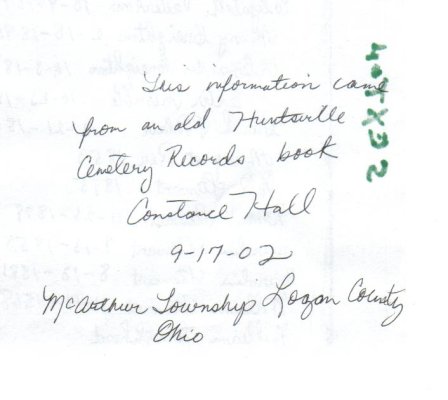 This information came
from an old Huntsville
Cemetery Records book
Constance Hall
9-17-02
McArthur Township Logan County
Ohio